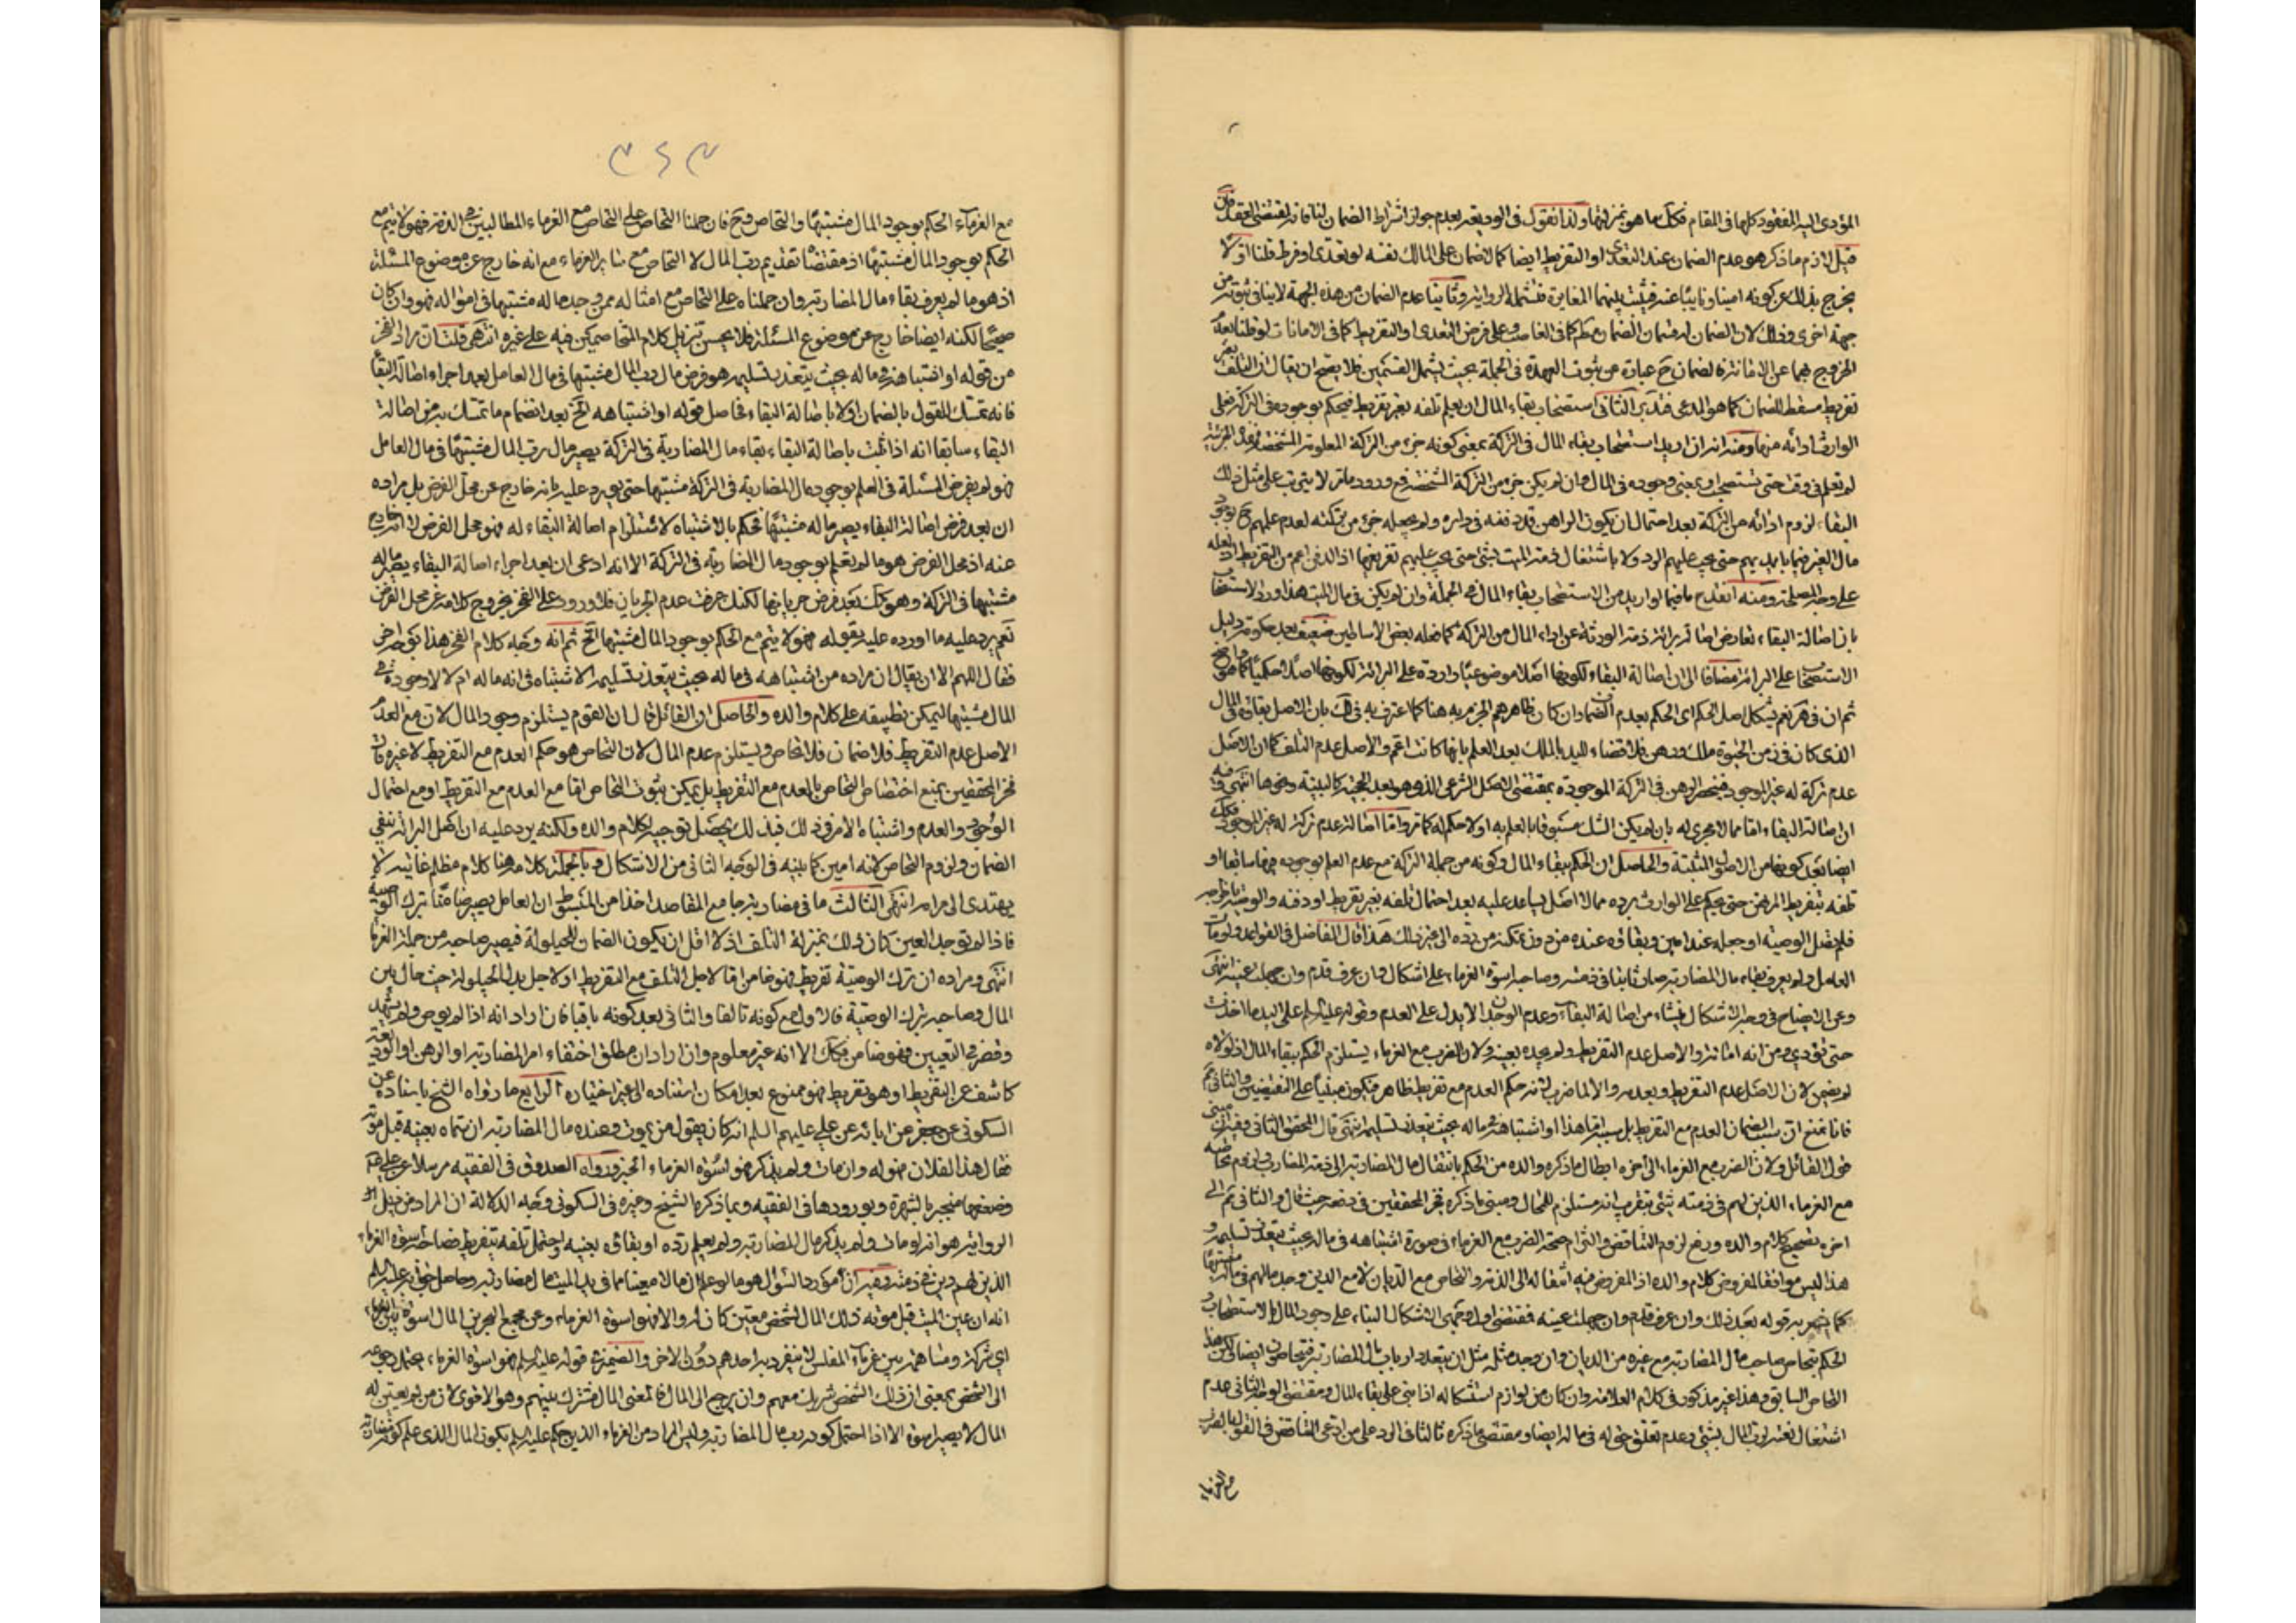 المؤدى اليه المفقود كلها في المقام فكل ما هو بمنزلتها ولذا نقول في الوديعة بعدم جواز اشتراط الضمان لمنافاته لمقتضى العقد فان
قيل لازم ما ذكر هو عدم الضمان عند التعدى او التفريط ايضا كما لا ضمان على المالك نفسه لو تعدى او فرط قلنا اولا
يخرج بذلك عن كونه امينا ونايبا عنه فيثبت بينهما المغايرة فتشمله الرواية وثانيا عدم الضمان من هذه الجهة لا ينافي ثبوته من
جهة اخرى وذلك لان الضمان ضمان كما في الغاصب وعلى فرض التعدى او التفريط كما في الامانات لو قلنا بعدم
الخروج بهما عن الامانة فالضمان ح عبارة من ثبوت العهدة في الجملة بحيث يشمل القسمين فلا يصح ان يقال ان التلف بغير
تفريط مسقط للضمان كما هو المدعى فتدبر الثاني استصحاب بقاء المال ان يعلم تلفه بغير تفريط فيحكم بوجوده في التركة فعلى
الوارث ادائه منها وفيه انه ان اريد استصحاب بقاء المال في التركة بمعنى كونه جزء من التركة المعلومة المشخصة فهذه الجزئية
لم تعلم في وقت حتى تستصحب او بمعنى وجوده في المال وان لم يكن جزء من التركة المشخصة فمع ورود ما مر لا يترتب على مثل ذلك
البقاء لزوم ادائه من التركة بعد احتمال ان يكون الراهن قد دفنه في داره ولم يجعله جزء من تركته لعدم علمهم ح بوجود
مال الغير فيما بايديهم حتى يجب عليهم الرد ولا باشتغال ذمة الميت بشئ حتى يجب عليهم تفريغها اذ الدفن اعم من التفريط اذ لعله
على وجه المصلحة ومنه انقدح ما فيما لو اريد من الاستصحاب بقاء المال في الجملة وان لم يكن في مال الميت هذا ورد الاستصحاب
بان اصالة البقاء تعارض اصالة برائة ذمة الورثة عن اداء المال من التركة كما فعله بعض الاساطين ضعيف بعد حكومة دليل
الاستصحاب على البرائة مضافا الى ان اصالة البقاء لكونها اصلا موضوعيا واردة على البرائة لكونها اصلا حكميا كما هو واضح
ثم ان في هر نعم يشكل اصل الحكم اى الحكم بعدم الضمان وان كان ظاهرهم الجزم به هنا كما اعترف به في لك بان الاصل بقاؤه في المال
الذى كان في زمن الحيوة ملك ورهن فلا قضاء لليد بالملك بعد العلم بانها كانت اعم والاصل عدم التلف كما ان الاصل
عدم تركة له غير الموجود فينحصر الرهن في التركة الموجودة بمقتضى الاصل الشرعى الذى هو بعد الحجية كالبينة ونحوها انتهى وفيه
ان اصالة البقاء اما مما لا مجرى له بان لم يكن الشك مسبوقا بالعلم به او لا حكم له كما مر واما اصالة عدم تركة له غير الموجود فكك
ايضا بعد كونها من الاصول المثبتة والحاصل ان الحكم ببقاء المال وكونه من جملة التركة مع عدم العلم بوجوده فيها سابقا او
تلفه بتفريط المرتهن حتى يحكم على الوارث برده مما لا اصل يساعد عليه بعد احتمال تلفه بغير تفريط او دفنه والوصية به
فلم يصل الوصية او جعله عند امين وبقاؤه عنده من دون تمكنه من رده الى غير ذلك هذا قال الفاضل في القواعد ولو مات
العامل ولم يعرف بقاء مال المضاربة صار ثابتا في ذمته وصاحبه اسوة الغرماء على اشكال وان عرف قدم وان جهلت عينه انتهى
وعن الايضاح في وجه الاشكال ينشأ من اصالة البقاء وعدم الوجدان لا يدل على العدم وقوله عليه السلم على اليد ما اخذت
حتى تؤدى ومن انه امانة والاصل عدم التفريط ولم يجده بعينه ولان الضرب مع الغرماء يستلزم الحكم ببقاء المال اذ لولاه
لم يضمن لان الاصل عدم التفريط وبعدمه والا لما ضرب لانه حكم العدم مع تفريط ظاهر فيكون مبنيا على النقيضين والثاني ثم
فانا نمنع ان سبب الضمان العدم مع التفريط بل سببه اما هذا او اشتباهه في ماله بحيث يتعذر تسليمه انتهى قال المحقق الثاني وفيه ان مبنى
قول القائل ولان الضرب مع الغرماء الى اخره ابطال ما ذكره والده من الحكم بانتقال مال المضاربة الى ذمة المضارب ولزوم تحاصه
مع الغرماء الذين لهم في ذمته شئ بتقريب انه مستلزم للمحال ومبنى ما ذكره فخر المحققين في دفعه حيث قال والثاني ثم الى
اخره تصحيح كلام والده ورفع لزوم التناقض والتزام صحة الضرب مع الغرماء في صورة اشتباهه في ماله بحيث يتعذر تسليمه و
هذا ليس موافقا لمفروض كلام والده اذ المفروض فيه انتقاله الى الذمة والتحاص مع الديان لا مع الذين وجد مالهم في ماله مشتبها
كما يشعر به قوله بعد ذلك وان عرف قدم وان جهلت عينه فمقتضى اول وجهى الاشكال البناء على وجود المال بالاستصحاب و
الحكم بتحاص صاحب مال المضاربة مع غيره من الديان وان وجد مثله مثل ان يتعدد ارباب مال المضاربة فيتحاصون ايضا لكن هذا
التحاص السابق وهذا غير مذكور في كلام العلامة وان كان من لوازم استشكاله اذا بنى على بقاء المال ومقتضى الوجه الثاني عدم
اشتغال ذمته لرب المال بشئ وعدم تعلق حق له في ماله ايضا ومقتضى ما ذكره ثالثا في الرد على من ادعى التناقض في القول بالضرب
مع الغرماء
٣٤٣
مع الغرماء الحكم بوجود المال مشتبها والتحاص وح فان حملنا التحاص على التحاص مع الغرماء المطالبين في الذمة فهو لا يتم مع
الحكم بوجود المال مشتبها اذ مقتضاه تقديم رب المال لا التحاص مع سائر الغرماء مع انه خارج عن موضوع المسئلة
اذ هو ما لم يعرف بقاء مال المضاربة وان حملناه على التحاص مع امثاله ممن وجد ماله مشتبها في امواله فهو وان كان
صحيحا لكنه ايضا خارج عن موضوع المسئلة فلا يحسن تنزيل كلام المتخاصمين فيه على غيره انتهى قلت ان مراد الفخر
من قوله او اشتباهه في ماله بحيث يتعذر تسليمه هو فرض مال رب المال مشتبها في مال العامل بعد اجراء اصالة البقاء
فانه تمسك للقول بالضمان اولا باصالة البقاء فحاصل قوله او اشتباهه الخ بعد انضمام ما تمسك به من اصالة
البقاء سابقا انه اذا ثبت باصالة البقاء بقاء مال المضاربة في التركة يصير مال رب المال مشتبها في مال العامل
فهو لم يفرض المسئلة في العلم بوجود مال المضاربة في التركة مشتبها حتى يورد عليه بانه خارج عن محل الفرض بل مراده
ان بعد فرض اصالة البقاء يصير ماله مشتبها فحكم بالاشتباه لاستلزام اصالة البقاء له فهو محل الفرض لا انه خارج
عنه اذ محل الفرض هو ما لم يعلم بوجود مال المضاربة في التركة الا انه ادعى ان بعد اجراء اصالة البقاء يصير ماله
مشتبها في التركة وهو كك بعد فرض جريانها لكنك عرفت عدم الجريان فلا ورود على الفخر بخروج كلامه عن محل الفرض
نعم يرد عليه ما اورده عليه بقوله فهو لا يتم مع الحكم بوجود المال مشتبها الخ ثم انه وجه كلام الفخر هذا بوجه اخر
فقال اللهم الا ان يقال ان مراده من اشتباهه في ماله بحيث يتعذر تسليمه الاشتباه في انه ماله ام لا لا وجوده في
المال مشتبها ليمكن تطبيقه على كلام والده والحاصل ان القائل قال ان القوم يستلزم وجود المال لان مع العدم
الاصل عدم التفريط فلا ضمان فلا تحاص ويستلزم عدم المال لان التحاص هو حكم العدم مع التفريط لا غير وان
فخر المحققين يمنع اختصاص التحاص بالعدم مع التفريط بل يمكن ثبوت التحاص اما مع العدم مع التفريط او مع احتمال
الوجود والعدم واشتباه الامر في ذلك فبذلك يحصل توجيه كلام والده ولكنه يرد عليه ان اصل البرائة ينفى
الضمان ولزوم التحاص لانه امين كما بينه في الوجه الثاني من الاشكال وبالجملة كلامه هنا كلام مظلم غايته لا
يهتدى الى مرامه انتهى الثالث ما في مضاربة جامع المقاصد اخذا من المبسوط ان العامل يصير ضامنا بترك الوصية
فاذا لم توجد العين كان ذلك بمنزلة التلف اذ لا اقل ان يكون الضمان للحيلولة فيصير صاحبه من جملة الغرماء
انتهى ومراده ان ترك الوصية تفريط فهو ضامن اما لاجل التلف مع التفريط او لاجل بدل الحيلولة حيث حال بين
المال وصاحبه بترك الوصية فالاول مع كونه تالفا والثاني بعد كونه باقيا فان اراد انه اذا لم يوص ولم يشهد
وقصر في التعيين فهو ضامن فكك الا انه غير معلوم وان اراد ان مطلق اختفاء امر المضاربة او الرهن او الوديعة
كاشف عن التفريط او هو تفريط فهو ممنوع بعد امكان استناده الى غير اختياره الرابع ما رواه الشيخ باسناده عن
السكونى عن جعفر عن ابائه عن علي عليهم السلم انه كان يقول من يموت وعنده مال المضاربة ان سماه بعينه قبل موته
فقال هذا لفلان فهو له وان مات ولم يذكر فهو اسوة الغرماء الخبر ورواه الصدوق في الفقيه مرسلا عن علي ع
وضعفها منجبر بالشهرة وبورودها في الفقيه وبما ذكره الشيخ وغيره في السكونى وجه الدلالة ان المراد من ذيل
الرواية هو انه لو مات ولم يذكر مال المضاربة ولم يعلم رده او بقاؤه بعينه واحتمل تلفه بتفريط فصاحبه اسوة الغرماء
الذين لهم دين في ذمته وفيه ان مورد السؤال هو ما لو علم ان مالا معينا مما في يد الميت مال مضاربة وحاصل جوابه عليه السلم
انه ان عين الميت قبل موته ذلك المال لشخص معين كان له والا فهو اسوة الغرماء وعن مجمع البحرين المال اسوة بين الغرماء
اى شركة ومساهمة بين غرماء المفلس لا ينفرد به احدهم دون الاخر والضمير في قوله عليه السلم فهو اسوة الغرماء يحتمل رجوعه
الى الشخص بمعنى ان ذلك الشخص شريك معهم وان يرجع الى المال فالمعنى المال مشترك بينهم وهو الاقوى لان من لم يعين له
المال لا يصير اسوة الا اذا احتمل كونه رب مال المضاربة وليس المراد من الغرماء الذين حكم عليه السلم بكون المال الذى علم كونه مضاربة